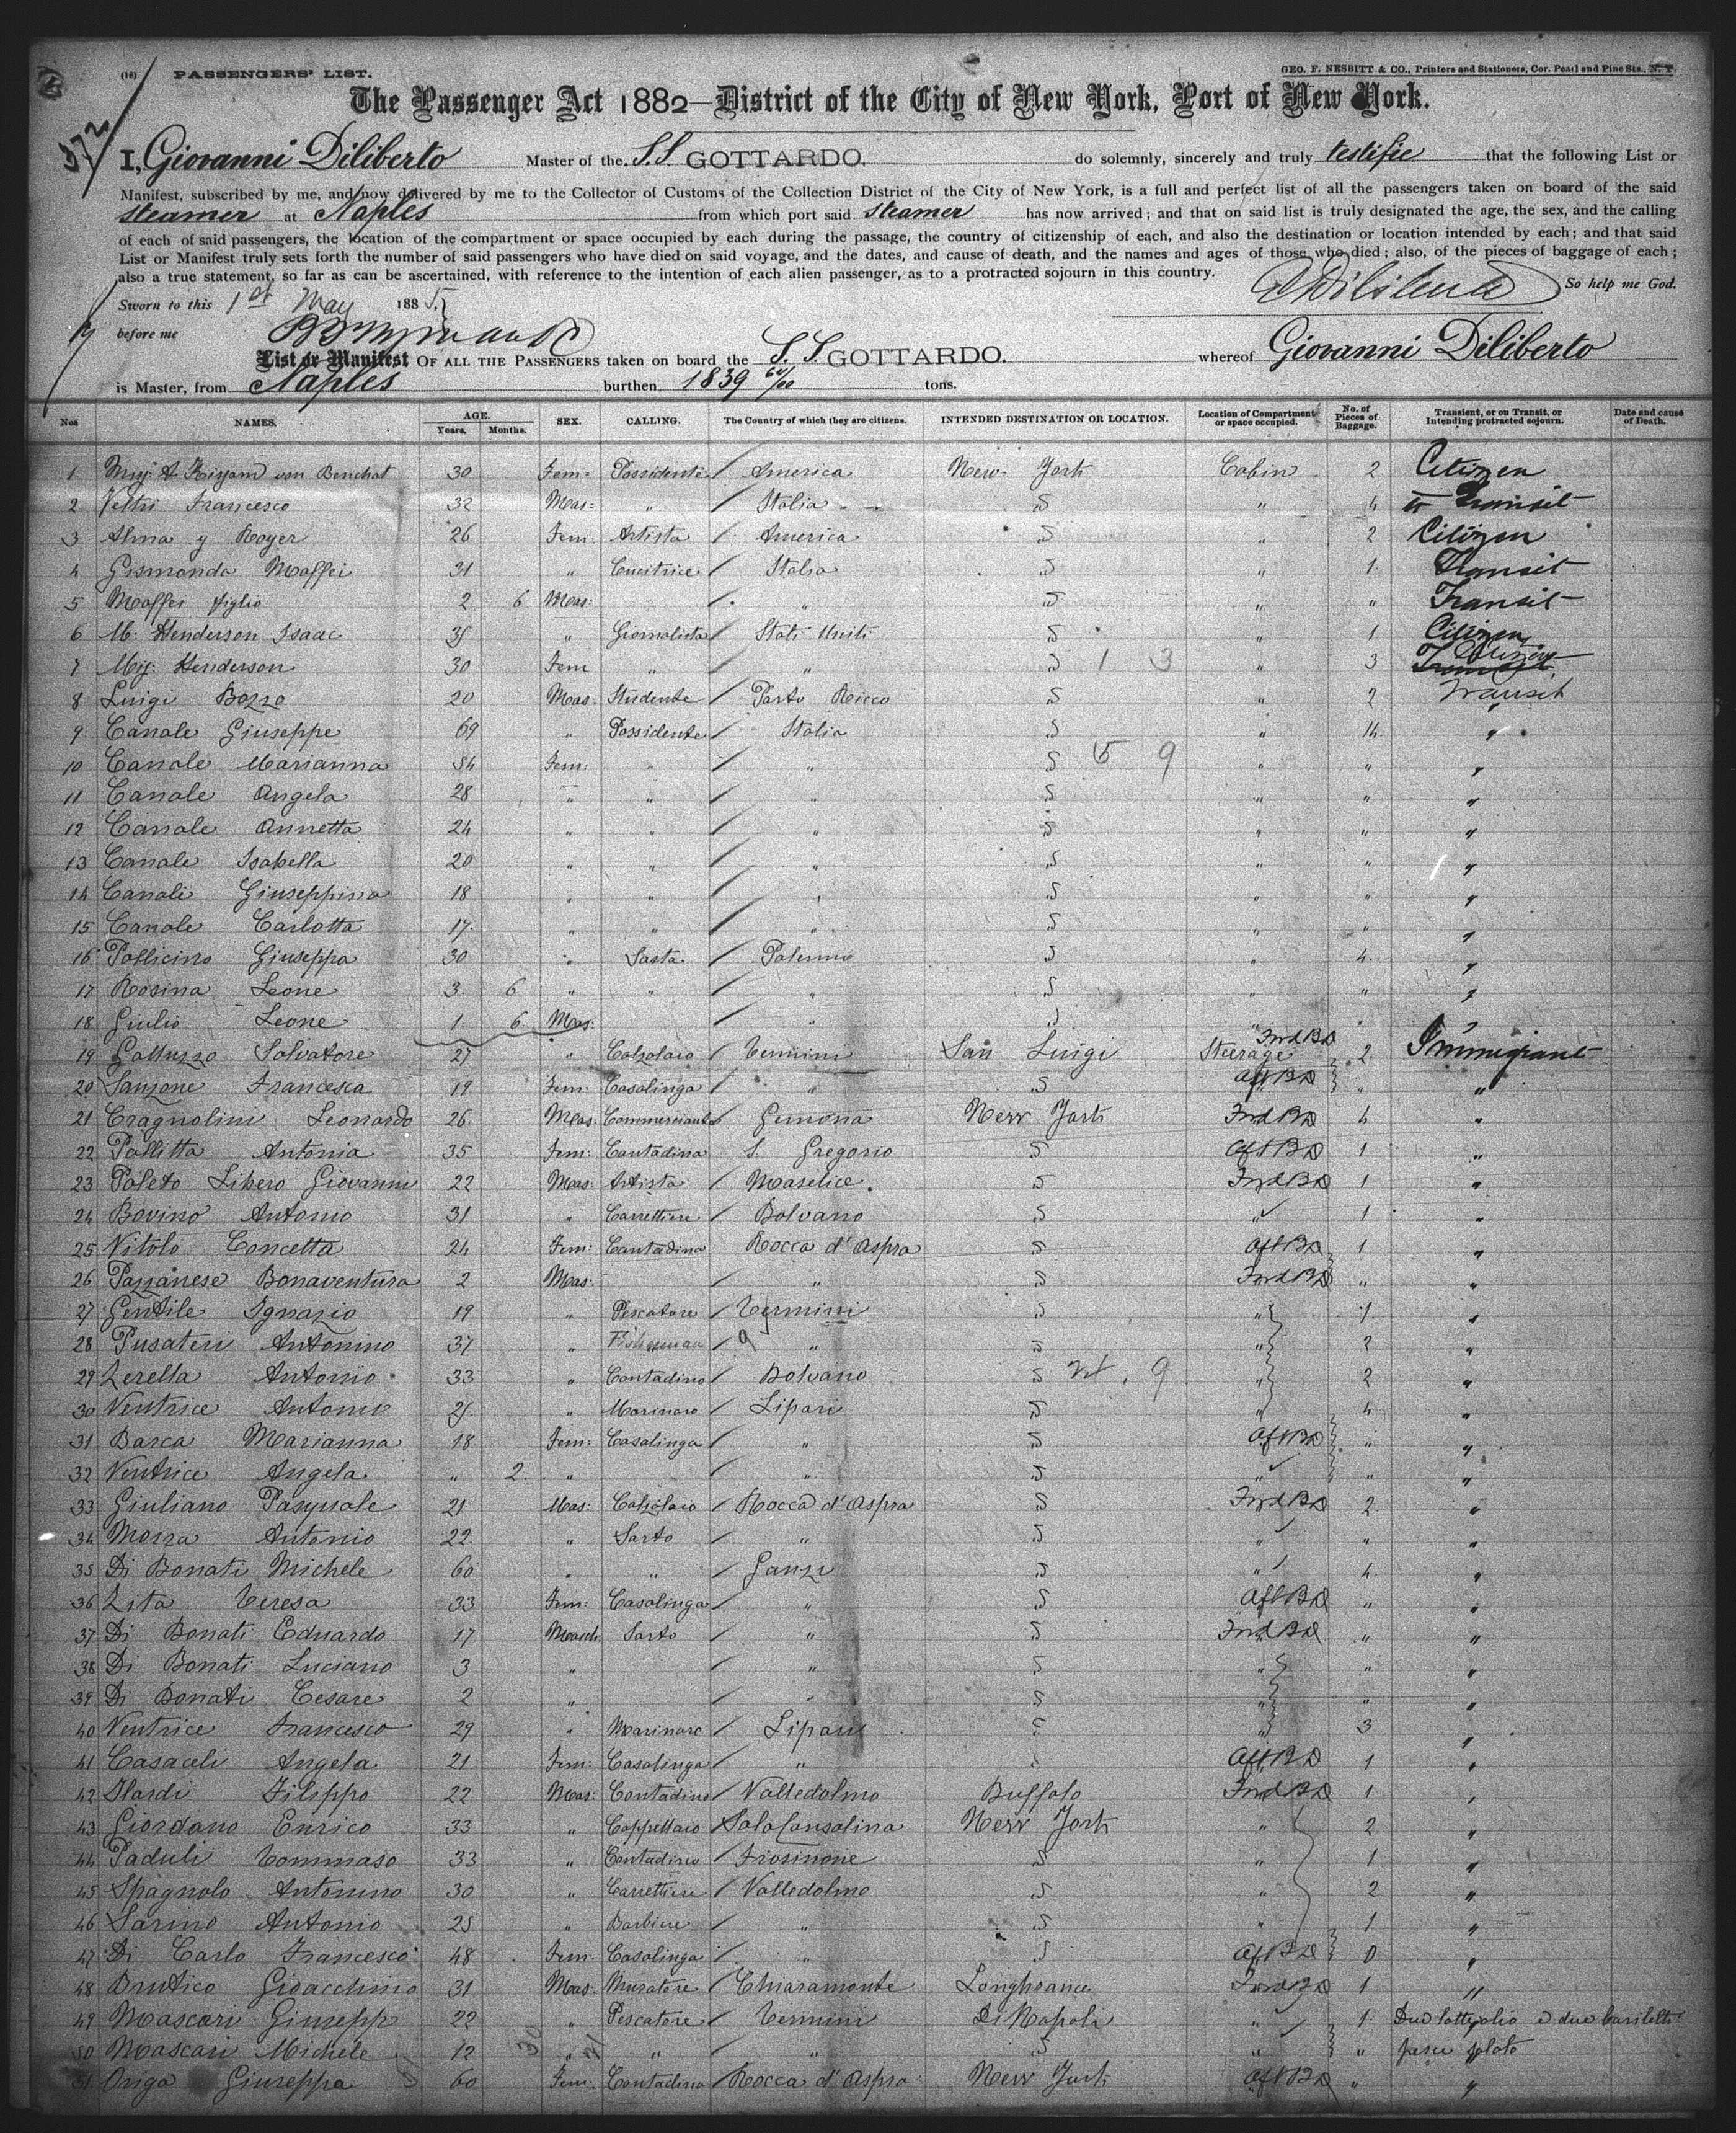 (18) PASSENGERS' LIST.
GEO. F. NESBITT & CO., Printers and Stationers, Cor. Pearl and Pine Sts., N. Y.
The Passenger Act 1882—District of the City of New York, Port of New York.
I, Giovanni Diliberto Master of the S.S. GOTTARDO. do solemnly, sincerely and truly testifie that the following List or
Manifest, subscribed by me, and now delivered by me to the Collector of Customs of the Collection District of the City of New York, is a full and perfect list of all the passengers taken on board of the said
steamer at Naples from which port said steamer has now arrived; and that on said list is truly designated the age, the sex, and the calling
of each of said passengers, the location of the compartment or space occupied by each during the passage, the country of citizenship of each, and also the destination or location intended by each; and that said
List or Manifest truly sets forth the number of said passengers who have died on said voyage, and the dates, and cause of death, and the names and ages of those who died; also, of the pieces of baggage of each;
also a true statement, so far as can be ascertained, with reference to the intention of each alien passenger, as to a protracted sojourn in this country.
So help me God.
Sworn to this 1st May 1885
before me
List or Manifest OF ALL THE PASSENGERS taken on board the S. S. GOTTARDO. whereof Giovanni Diliberto
is Master, from Naples burthen 1839 tons.
Nos NAMES. AGE. Years. Months. SEX. CALLING. The Country of which they are citizens. INTENDED DESTINATION OR LOCATION. Location of Compartment or space occupied. No. of Pieces of Baggage. Transient, or on Transit, or Intending protracted sojourn. Date and cause of Death.
1 30 Fem: Possidente America New York Cabin 2 Citizen
2 Vetri Francesco 32 Mas: " Italia " " 4 Transit
3 Alma y Royer 26 Fem: Artista America " " 2 Citizen
4 Gismonda Maffei 31 " Cucitrice Italia " " 1 Transit
5 Maffei figlio 2 6 Mas: " " " " Transit
6 M. Henderson Isaac 35 " Giornalista Stati Uniti " " 1 Citizen
7 Henderson 30 Fem " " " " 3 Citizen
8 Luigi Bozzo 20 Mas: Studente Porto Ricco " " 2 Transit
9 Canale Giuseppe 69 " Possidente Italia " " 14 "
10 Canale Marianna 54 Fem: " " " " " "
11 Canale Angela 28 " " " " " " "
12 Canale Annetta 24 " " " " " " "
13 Canale Isabella 20 " " " " " " "
14 Canale Giuseppina 18 " " " " " " "
15 Canale Carlotta 17 " " " " " " "
16 Pollicino Giuseppa 30 " Sarta Palermo " " 4 "
17 Rosina Leone 3 6 " " " " " " "
18 Giulio Leone 1 6 Mas: " " " " "
19 Galluzzo Salvatore 27 " Calzolaio Termini San Luigi Steerage Fwd BD 2 Immigrant
20 Sanzone Francesca 19 Fem: Casalinga " " Aft BD " "
21 Cragnolini Leonardo 26 Mas: Commerciante Gemona New York Fwd BD 4 "
22 Pollitta Antonia 35 Fem: Contadina S. Gregorio " Aft BD 1 "
23 Poleto Libero Giovanni 22 Mas: Artista Maselice " Fwd BD 1 "
24 Bovino Antonio 31 " Carrettiere Bolvano " " 1 "
25 Vitolo Concetta 24 Fem: Contadina Rocca d'Aspra " Aft BD 1 "
26 Pazzanese Bonaventura 2 Mas: " " Fwd BD " "
27 Gentile Ignazio 19 " Pescatore Termini " " 1 "
28 Pusateri Antonino 37 " Fisherman " " " 2 "
29 Zerella Antonio 33 " Contadino Bolvano " " 2 "
30 Ventrice Antonio " Marinaro Lipari " " 4 "
31 Barca Marianna 18 Fem: Casalinga " " Aft BD " "
32 Ventrice Angela " 2 " " " " " "
33 Giuliano Pasquale 21 Mas: Calzolaio Rocca d'Aspra " Fwd BD 2 "
34 Mozza Antonio 22 " Sarto " " " " "
35 Di Bonati Michele 60 " " Ganzi " " 4 "
36 Zita Teresa 33 Fem: Casalinga " " Aft BD " "
37 Di Bonati Eduardo 17 Masch: Sarto " " Fwd BD " "
38 Di Bonati Luciano 3 " " " " " "
39 Di Bonati Cesare 2 " " " " " "
40 Ventrice Francesco 29 " Marinaro Lipari " " 3 "
41 Casaceli Angela 21 Fem: Casalinga " " Aft BD 1 "
42 Ilardi Filippo 22 Mas: Contadino Valledolmo Buffalo Fwd BD 1 "
43 Giordano Enrico 33 " Cappellaio Sala Consolina New York " 2 "
44 Paduli Tommaso 33 " Contadino Frosinone " " 1 "
45 Spagnolo Antonino 30 " Carrettiere Valledolmo " " 2 "
46 Sarino Antonio 25 " Barbiere " " " 1 "
47 Di Carlo Francesca 48 Fem: Casalinga " " Aft BD 0 "
48 Brutico Gioacchino 31 Mas: Muratore Chiaramonte Fwd BD 1 "
49 Mascari Giusepp 22 " Pescatore Termini Di Napoli " 1 Due latte olio e due barilotti
50 Mascari Michele 12 " " " " " " pesce salato
51 Origa Giuseppa 60 Fem: Contadina Rocca d'Aspra New York Aft BD " "